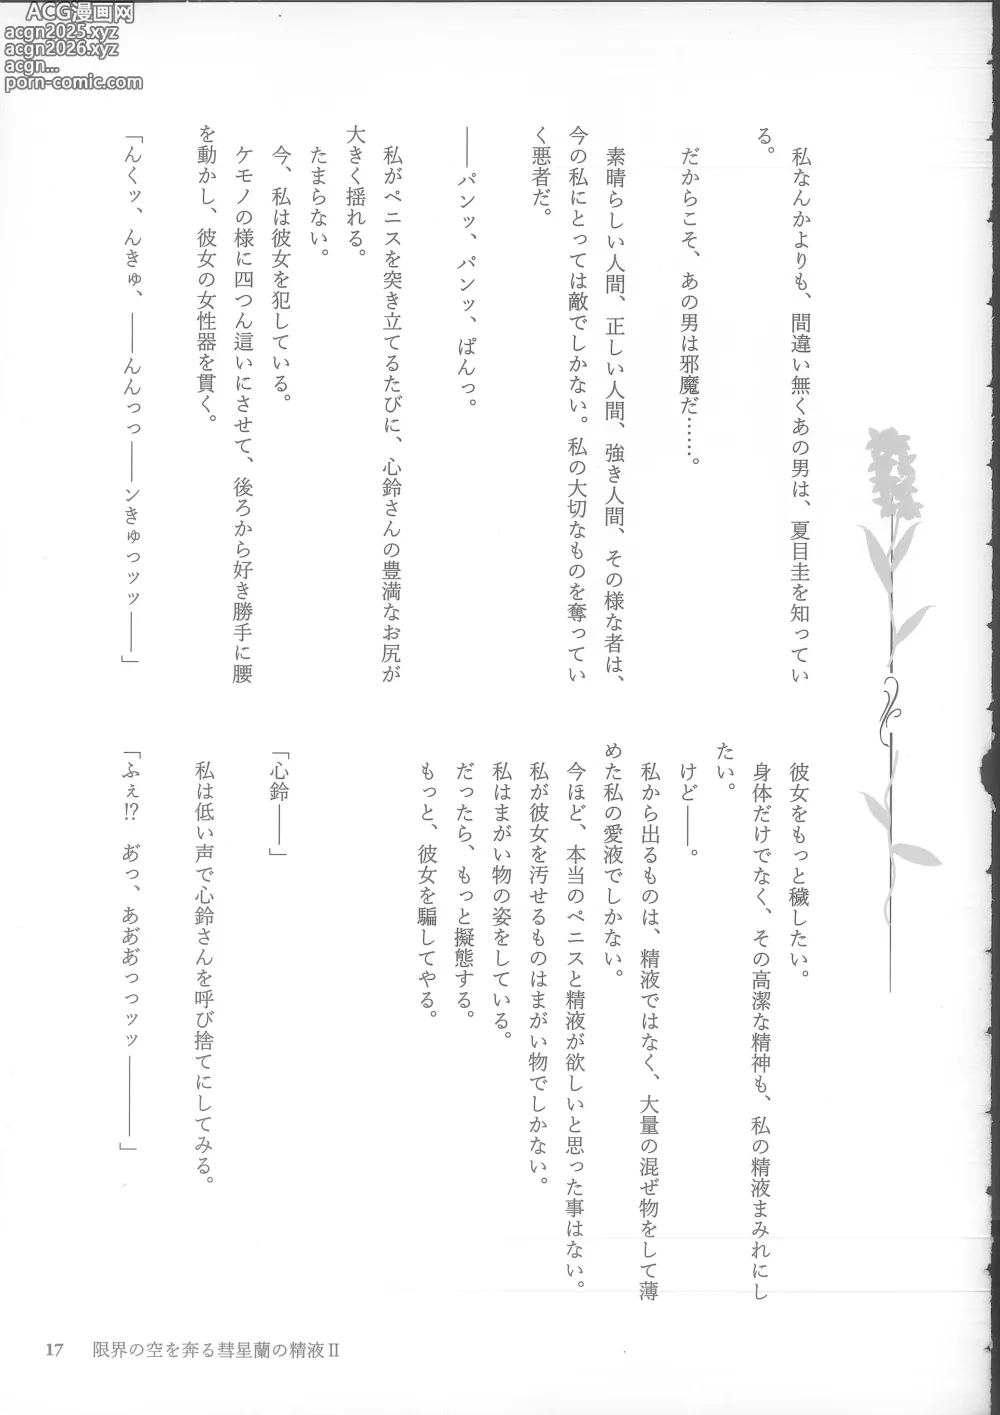 ACG漫画网
acgn2025.xyz
acgn2026.xyz
acgn...
porn-comic.com
私なんかよりも、間違い無くあの男は、夏目圭を知ってい
る。
だからこそ、あの男は邪魔だ……。
素晴らしい人間、正しい人間、強き人間、その様な者は、
今の私にとっては敵でしかない。私の大切なものを奪ってい
く悪者だ。
――パンッ、パンッ、ぱんっ。
私がペニスを突き立てるたびに、心鈴さんの豊満なお尻が
大きく揺れる。
たまらない。
今、私は彼女を犯している。
ケモノの様に四つん這いにさせて、後ろから好き勝手に腰
を動かし、彼女の女性器を貫く。
「んくッ、んきゅ、――んんっっ――ンきゅっッッ――」
彼女をもっと穢したい。
身体だけでなく、その高潔な精神も、私の精液まみれにし
たい。
けど――。
私から出るものは、精液ではなく、大量の混ぜ物をして薄
めた私の愛液でしかない。
今ほど、本当のペニスと精液が欲しいと思った事はない。
私が彼女を汚せるものはまがい物でしかない。
私はまがい物の姿をしている。
だったら、もっと擬態する。
もっと、彼女を騙してやる。
「心鈴――」
私は低い声で心鈴さんを呼び捨てにしてみる。
「ふぇ!?　あ゙っ、ああ゙あ゙っっッッ――――」
17　限界の空を奔る彗星蘭の精液Ⅱ